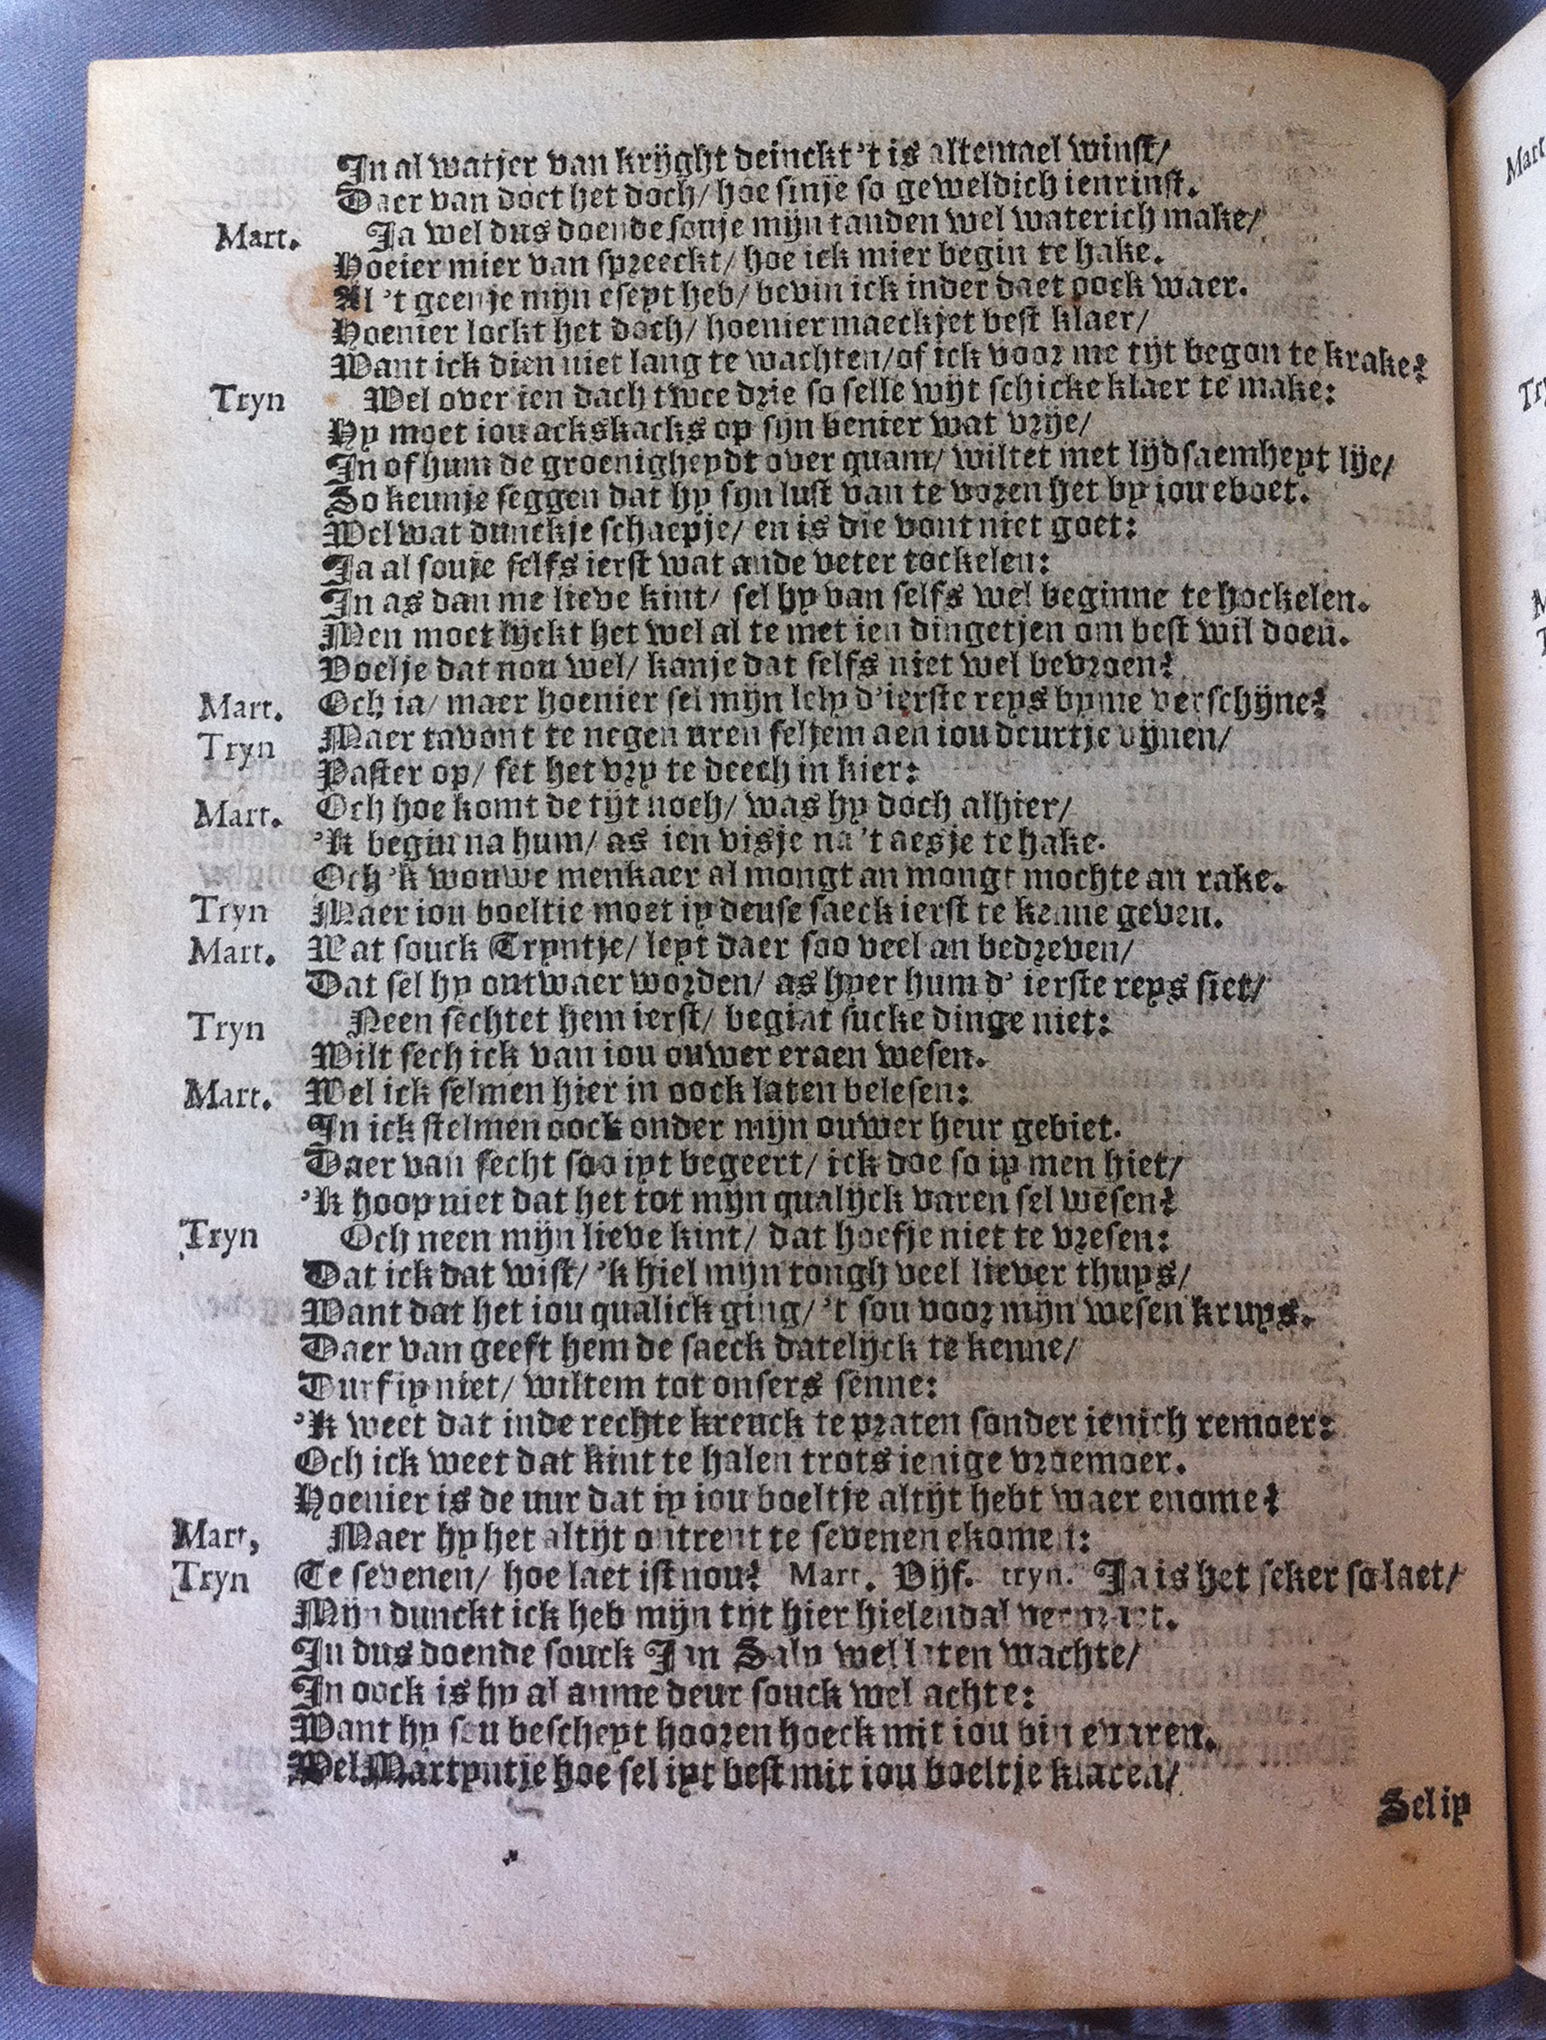 In al watjer van krijght deinckt 't is altemael winst/
Daer van doet het doch/ hoe sinje so geweldich ienrinst.
Mart. Ja wel dus doende souje mijn tanden wel waterich make/
Hoeier mier van spreeckt/ hoe ick mier begin te hake.
Al 't geenje mijn eseyt heb/ bevin ick inder daet oock waer.
Hoenier lockt het doch/ hoenier maeckjet best klaer/
Want ick dien niet lang te wachten/ of ick voor me tijt begon te krake?
Tryn Wel over ien dach twee drie so selle wijt schicke klaer te make:
Hy moet iou ackskacks op sijn benier wat vrije/
In of hum de groenigheydt over quam/ wiltet met lijdsaemheyt lije/
So keunje seggen dat hy sijn lust van te voren het by iou eboet.
Wel wat dunckje schaepje/ en is die vont niet goet:
Ja al souje selfs ierst wat ande veter tockelen:
In as dan me lieve kint/ sel hy van selfs wel beginne te hockelen.
Men moet lijckt het wel al te met ien dingetjen om best wil doen.
Voelje dat nou wel/ kanje dat selfs niet wel bevroen?
Mart. Och ia/ maer hoenier sel mijn lely d'ierste reys byme verschijne?
Tryn Maer tavont te negen uren seljem aen iou deurtje vijnen/
Paster op/ set het vry te deech in kier:
Mart. Och hoe komt de tijt noch/ was hy doch alhier/
'K begin na hum/ as ien visje na 't aesje te hake.
Och 'k wouwe menkaer al mongt an mongt mochte an rake.
Tryn Maer iou boeltie moet iy deuse saeck ierst te kenne geven.
Mart. Wat souck Tryntje/ leyt daer soo veel an bedreven/
Dat sel hy ontwaer worden/ as hyer hum d' ierste reys siet/
Tryn Neen sechtet hem ierst/ begint sucke dinge niet:
Wilt sech ick van iou ouwer eraen wesen.
Mart. Wel ick selmen hier in oock laten belesen:
In ick stelmen oock onder mijn ouwer heur gebiet.
Daer van secht soo iyt begeert/ ick doe so iy men hiet/
'K hoop niet dat het tot mijn qualijck varen sel wesen?
Tryn Och neen mijn lieve kint/ dat hoefje niet te vresen:
Dat ick dat wist/ 'k hiel mijn tongh veel liever thuys/
Want dat het iou qualick ging/ 't sou voor mijn wesen kruys.
Daer van geeft hem de saeck datelijck te kenne/
Durf iy niet/ wiltem tot onsers senne:
'K weet dat inde rechte krenck te praten sonder ienich remoer:
Och ick weet dat kint te halen trots ienige vroemoer.
Hoenier is de uur dat iy iou boeltje altijt hebt waer enome?
Mart, Maer hy het altijt ontrent te sevenen ekomen:
Tryn Te sevenen/ hoe laet ist nou? Mart. Vijf. tryn. Ja is het seker so laet/
Mijn dunckt ick heb mijn tijt hier hielendal verpraet.
In dus doende souck Jan Saly wel laten wachte/
In oock is hy al anme deur souck wel achte:
Want hy sou bescheyt hooren hoeck mit iou bin evaren.
Wel Martyntje hoe sel iyt best mit iou boeltje klaren/
Sel iy